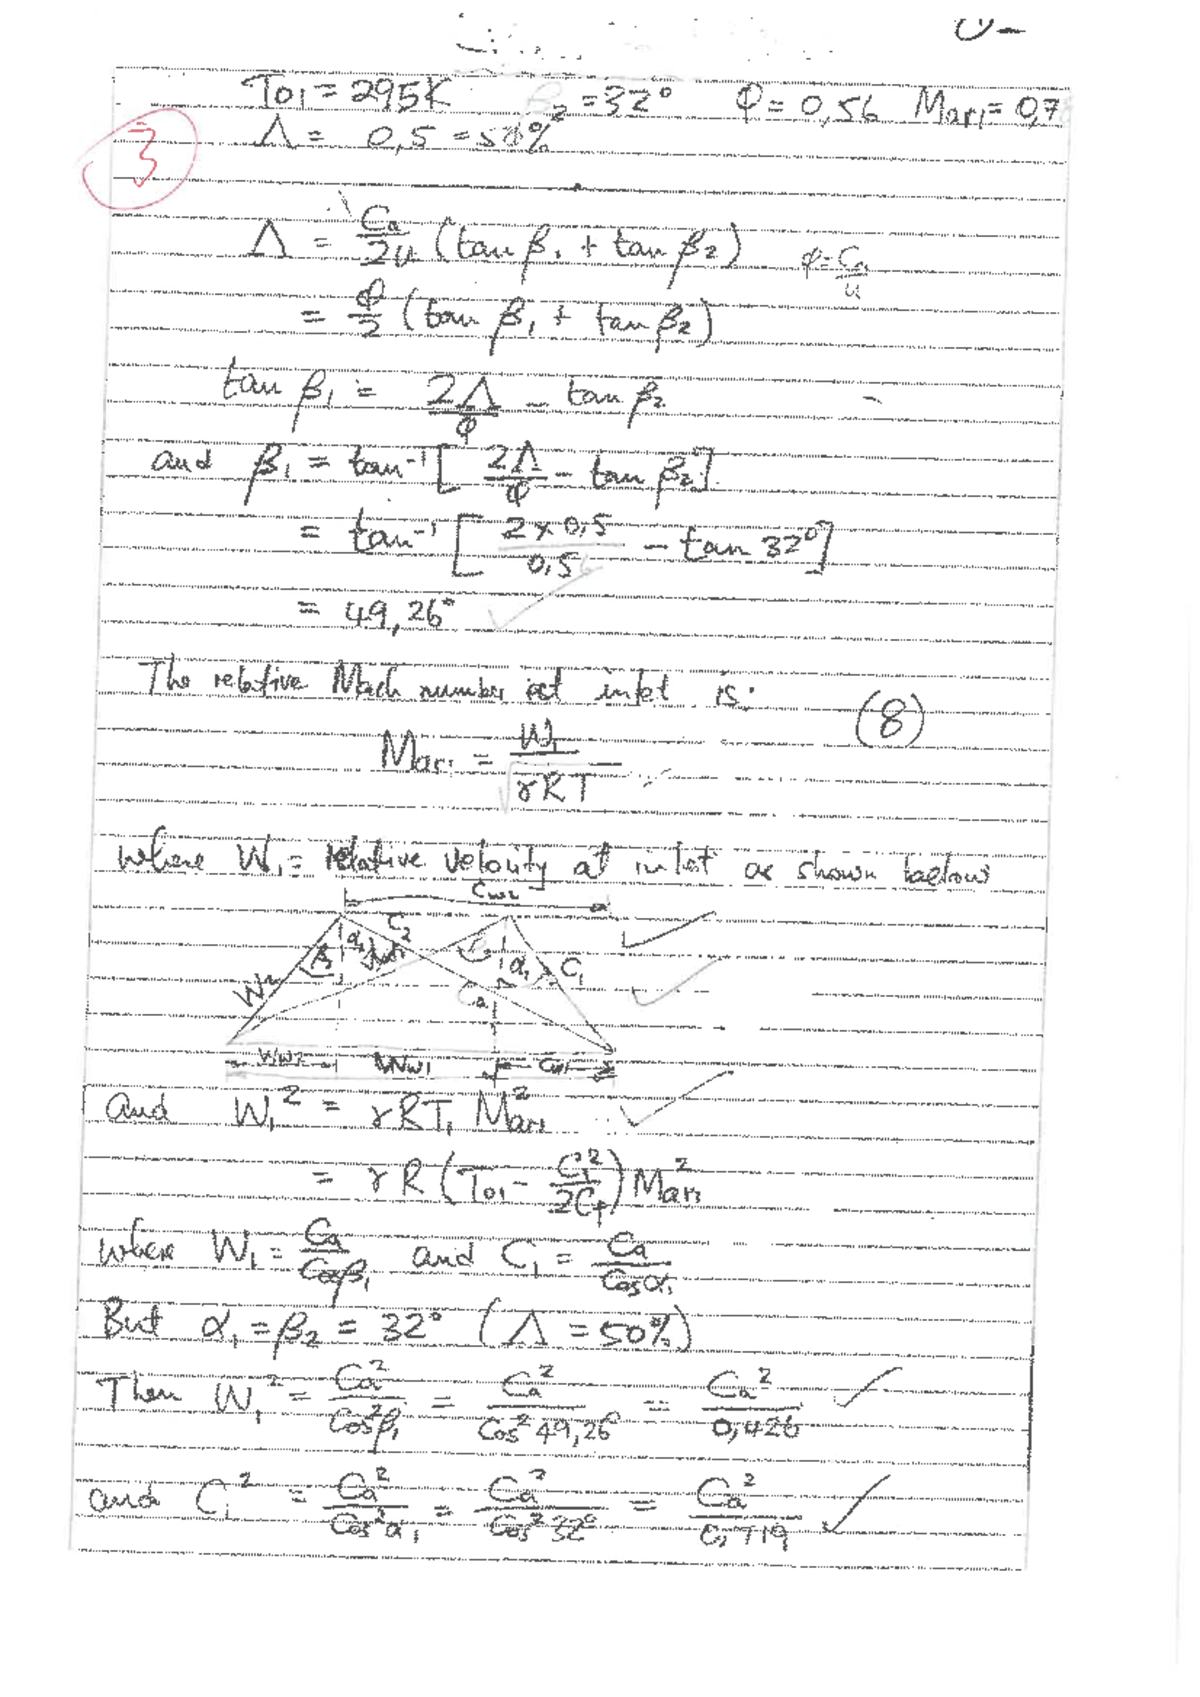 To1 = 295K β2 = 32° φ = 0,56 Mar1 = 0,7
3 Λ = 0,5 = 50%
Λ = Ca/2u (tan β1 + tan β2) φ = Ca/u
= φ/2 (tan β1 + tan β2)
tan β1 = 2Λ/φ - tan β2
and β1 = tan⁻¹ [2Λ/φ - tan β2]
= tan⁻¹ [2 x 0,5/0,56 - tan 32°]
= 49,26°
The relative Mach number at inlet is:
(8)
Mar1 = W1/√γRT
where W1 = relative velocity at inlet as shown below
Cw2
C2
α1 C1
W2
Ca
Ww2 Ww1 Cw1
and W1² = γRT1 Mar1²
= γR (To1 - C1²/2Cp) Mar1²
where W1 = Ca/Cosβ1 and C1 = Ca/Cosα1
But α1 = β2 = 32° (Λ = 50%)
Then W1² = Ca²/Cos²β1 = Ca²/Cos² 49,26 = Ca²/0,426
and C1² = Ca²/Cos²α1 = Ca²/Cos² 32° = Ca²/0,719